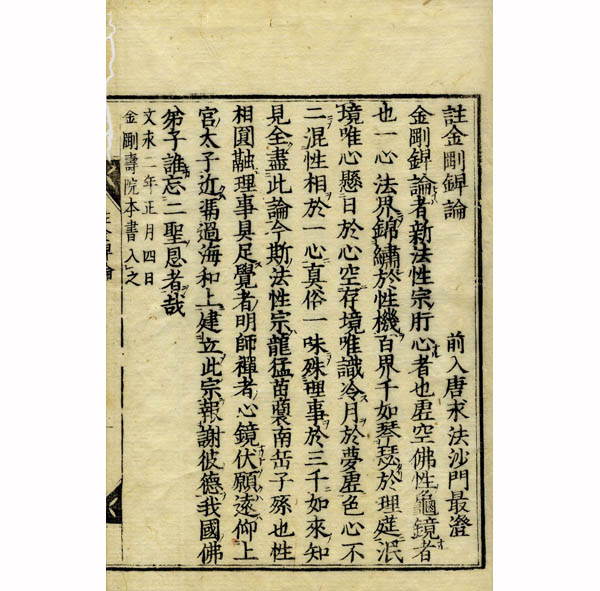 註金剛錍論　前入唐求法沙門最澄
金剛錍論者新法性宗肝心者也虛空佛性龜鏡者
也一心法界錦繡於性機百界千如琴瑟於理筵泯
境唯心懸日於心空存境唯識冷月於夢虛色心不
二混性相於一心真俗一味殊理事於三千如來知
見全盡此論今斯法性宗龍猛苗裔南岳子孫也性
相圓融理事具足覺者明師禪者心鏡伏願遠仰上
宮太子近馮過海和上建立此宗報謝彼德我國佛
弟子誰忘二聖恩者哉
文永二年正月四日
金剛壽院本書入之